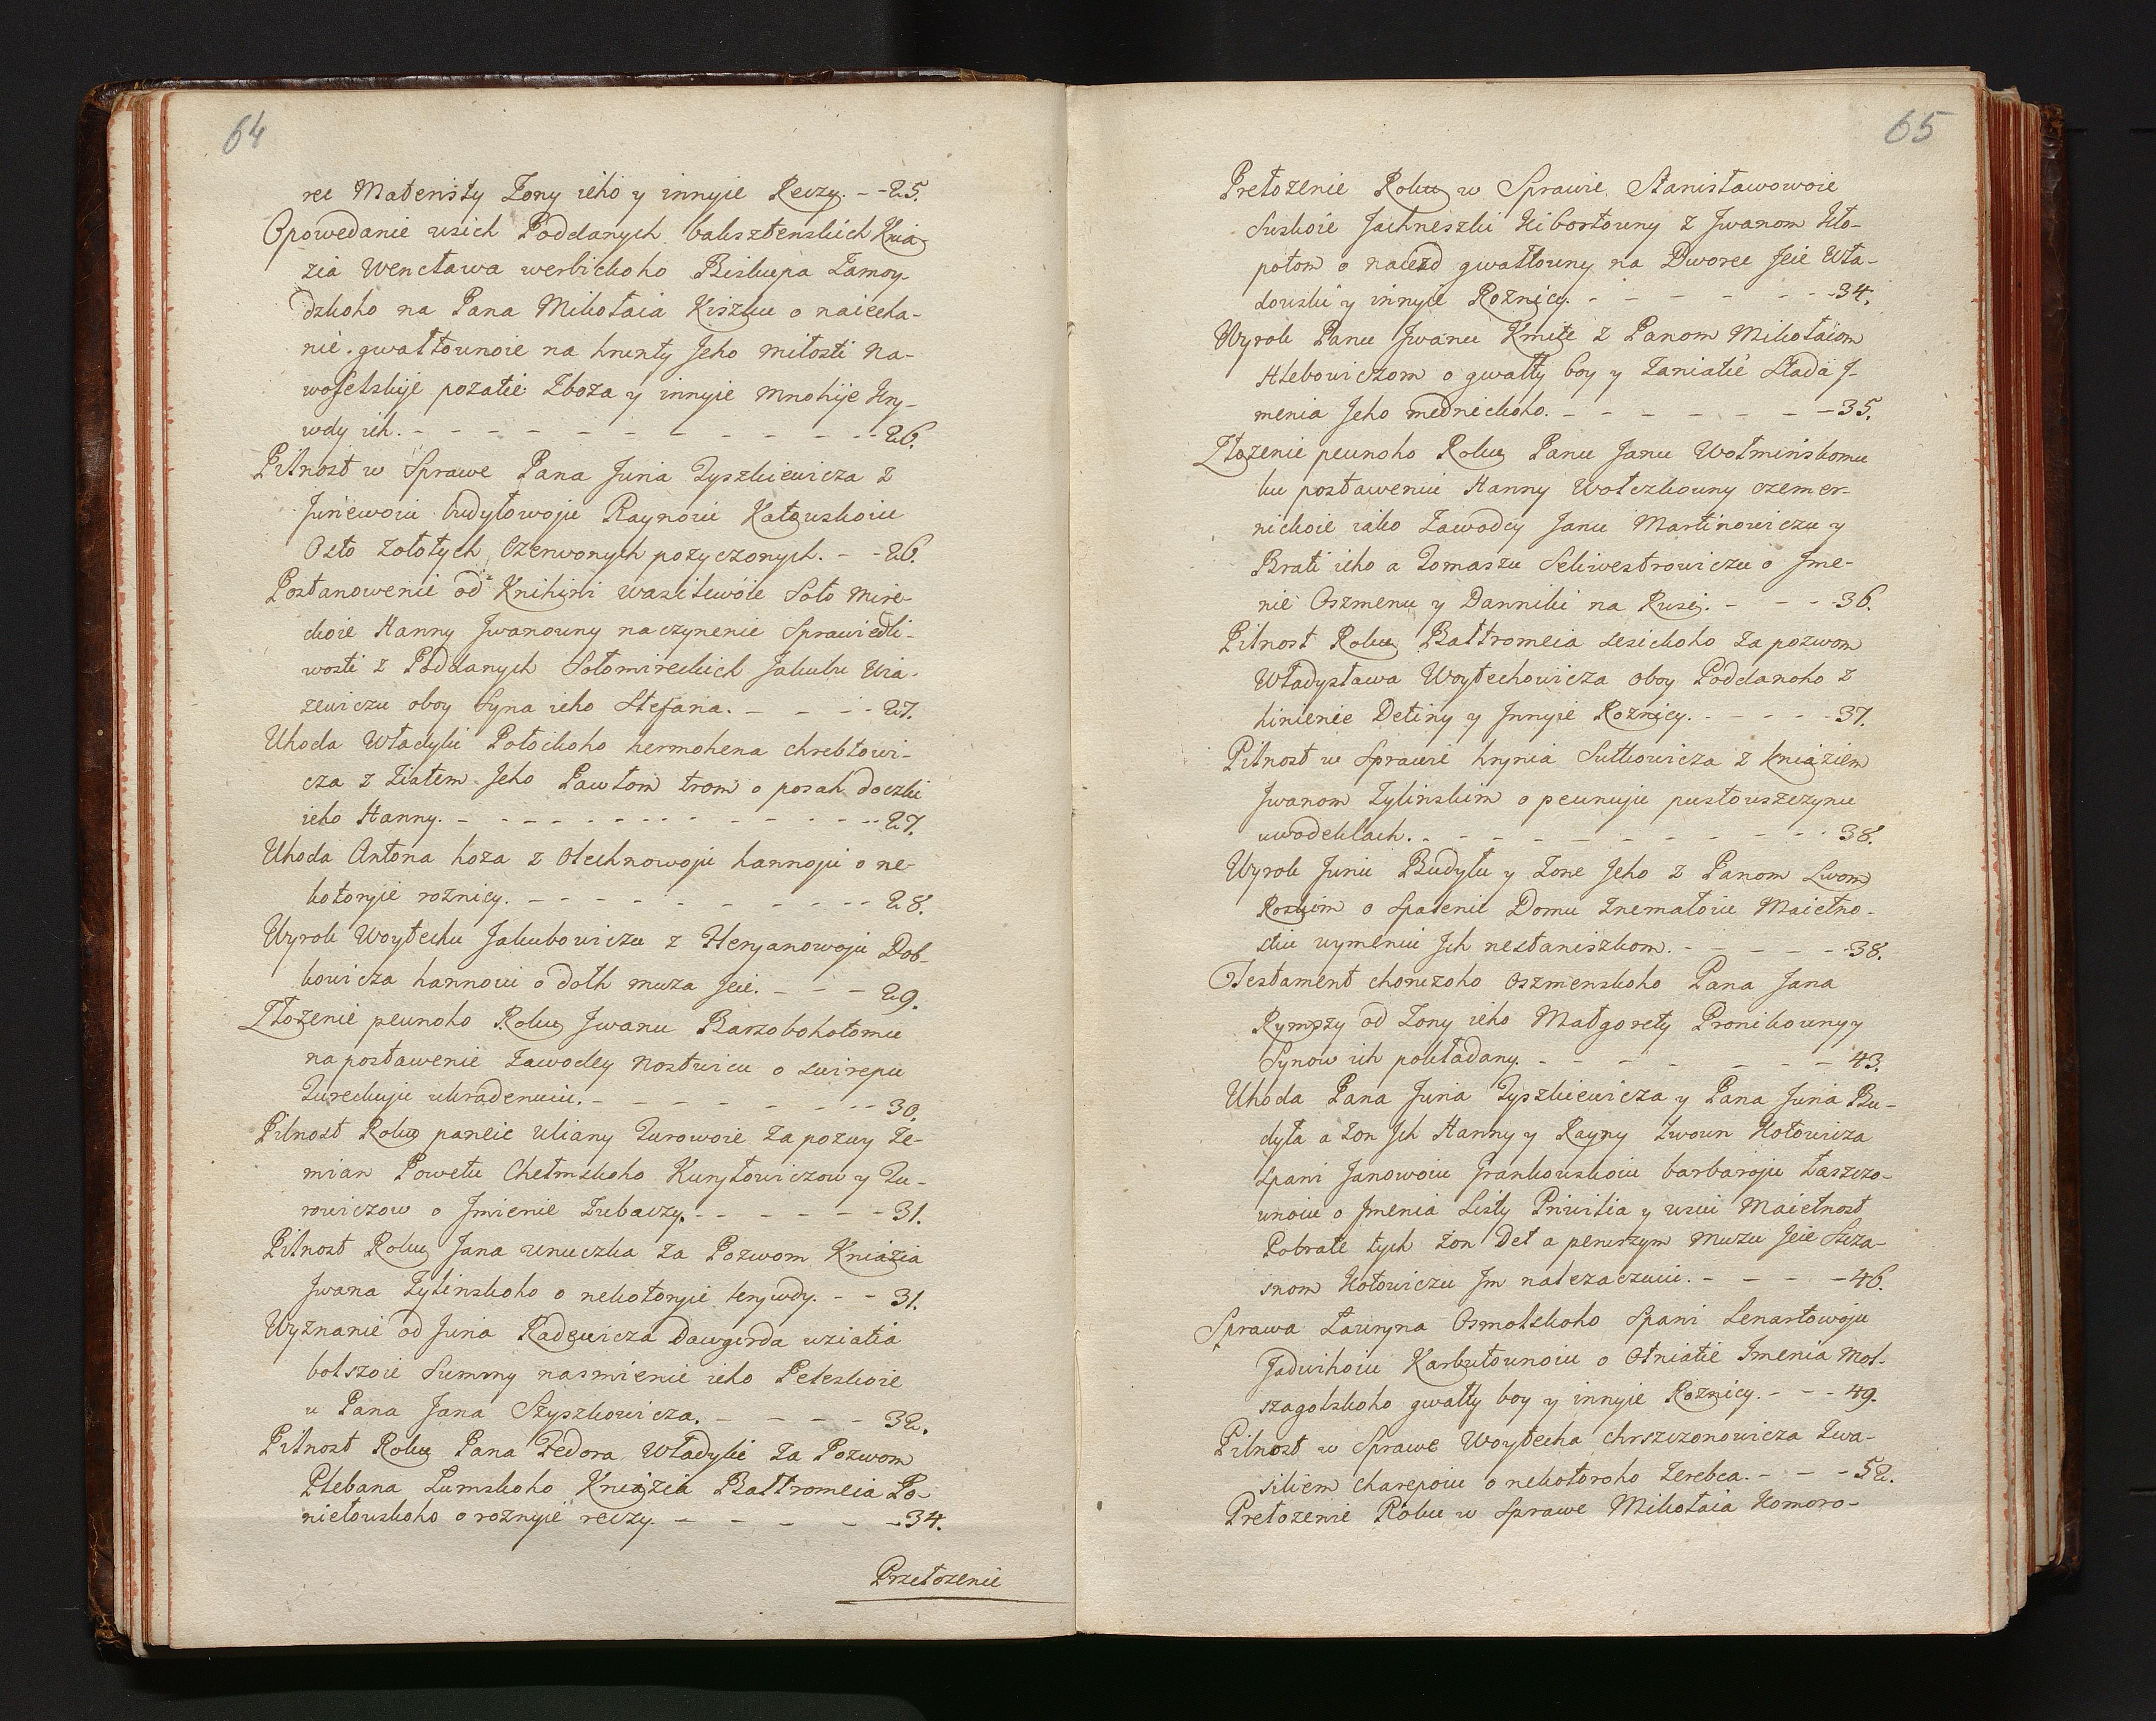 64
ree Matenisty Żony ieho y innyie Reczy. - - 25.
Opowedanie wsich Poddanych baksztenskich Knia-
zia Wencława werbickoho Biskupa Żamoy-
dzkoho na Pana Mikołaia Kiszku o naiecha-
nie gwałtounoie na hrunty Jeho miłosti Na-
woselskije pożatie Zboża y innyie mnohije Kry-
wdy ich. - - - - - - - - - - - - 26.
Pilnost w Sprawe Pana Juria Tyszkiewicza z
Juriewoiu Budyłowoju Raynoiu Katouskoiu
Osto Zołotych Czerwonych pożyczonych. - - 26.
Postanowenie od Knihini wasilewoie Soło mire-
ckoie Hanny Jwanouny naczynenie Sprawiedli-
wosti z Poddanych Sołomireckich Jakubu Wia-
zewiczu oboy Syna ieho Stefana. - - - - 27.
Uhoda Władyki Połockoho hermohena chrebtowi-
cza z Ziatem Jeho Pawłom trom o posah doczki
ieho Hanny. - - - - - - - - - - - - 27.
Uhoda Antona koza z Olechnowoju hannoju o ne-
kotoryie roznicy. - - - - - - - - - - - 28.
Wyrok Woytechu Jakubowiczu z Heryanowoju Dob-
kowicza hannoiu o dolh muza Jeie. - - - 29.
Złożenie peunoho Roku Jwanu Barsobohatomu
na postawenie Zawodcy Nostwicu o swirepu
Tureckuju ukradenuiu. - - - - - - - - 30.
Pilnost Roku paneie Uliany Turowoie Za pozwy Ze-
mian Powetu Chełmskoho Kuryłowiczow y Tu-
rowiczow o Jmienie Zubaczy. - - - - - - 31.
Pilnost Roku Jana Unuczka Za Pozwom Kniazia
Jwana Żylinskoho o nekotoryie krywdy. - - 31.
Wyznanie od Juria Radewicza Dawgirda uziatia
bolszoie Summy nasmienie ieho Peleskoie
u Pana Jana Szyszkowicza. - - - - - 32.
Pilnost Roku Pana Fedora Władyki Za Pozwom
Plebana Łumskoho Kniazia Bałtromeia Po-
niełouskoho o roznyie reczy. - - - - - - 34.
Przełożenie
65
Prełożenie Roku w Sprawie Stanisławowoie
Suskoie Jachneszki Kibortouny z Jwanom Kło-
potom o naiezd gwałtouny na Dworec Jeie Wła-
douski y innyie Roznicy. - - - - - - - 34.
Wyrok Panu Jwanu Kmite z Panom Mikołaiom
Hlebowiczom o gwałty boy y Zaniatie Stada J-
menia Jeho mednickoho. - - - - - - - 35.
Złożenie peunoho Roku Panu Janu Wołminskomu
ku postaweniu Hanny Wołczkouny czemer-
nickoie iako Zawodcy Janu Martinowiczu y
Brati ieho a Tomaszu Seliwestrowiczu o Jme-
nie Oszmenu y Danniki na Rusi. - - - 36.
Pilnost Roku Bałtromeia Lesickoho Za pozwom
Władysława Woytechowicza oboy Poddanoho z
hinienie Detiny y Jnnyie Roznicy. - - - - - 37.
Pilnost w Sprawie hrynia Sutkowicza z Kniaziem
Jwanom Żylinskim o peunuju pustouszczynu
uwodehlach. - - - - - - - - - - - 38.
Wyrok Juriu Budyłu y Zone Jeho z Panom Lwom
Roskim o Spalenie Domu Znemałoiu Maietno-
stiu uymeniu Jch nestaniszkom. - - - - - 38.
Testament chorużoho Oszmenskoho Pana Jana
Rymszy od Zony ieho Małgorety Pronikouny y
Synow ich pokładany. - - - - - - - 43.
Uhoda Pana Juria Tyszkiewicza y Pana Juria Bu-
dyła a Zon Jch Hanny y Rayny Zwoun Hołowicza
Spani Janowoiu frankouskoiu barbaroju Łaszczo-
unoiu o Jmenia Listy Priwilia y wsiu Maietnost
Pobrate tych Zon Det a perwszym Muzu Jeie Szcza-
snom Hołowiczu Jm należaczuiu. - - - - 46.
Sprawa Ławryna Osmolskoho Spani Lenartowoju
Jadwihoiu Karbutounoiu o Otniatie Jmenia Mol-
szagolskoho gwałty boy y innyie Roznicy. - - - 49.
Pilnost w Sprawe Woytecha chrszczonowicza Zwa-
siliem charepoiu o nekotoroho Żerebca. - - - 52.
Prełożenie Roku w Sprawe Mikołaia Komoro-